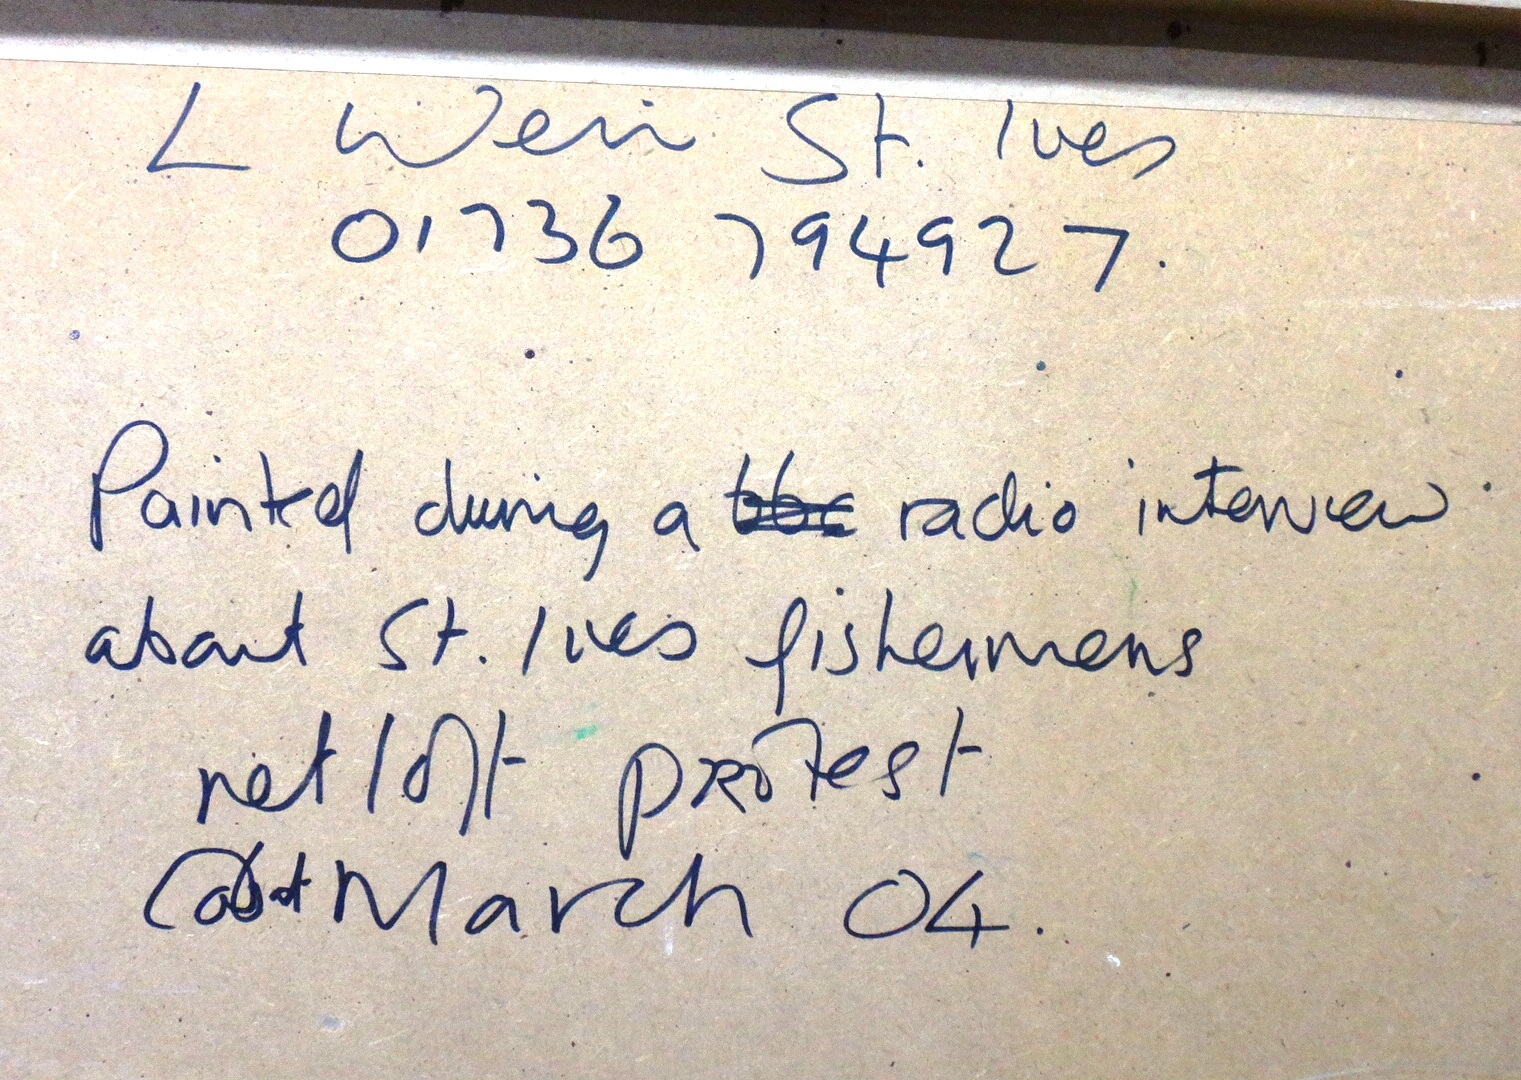 L Weir St. Ives
01736 794927.
Painted during a bbc radio interview
about St. Ives fishermens
net loft protest
March 04.